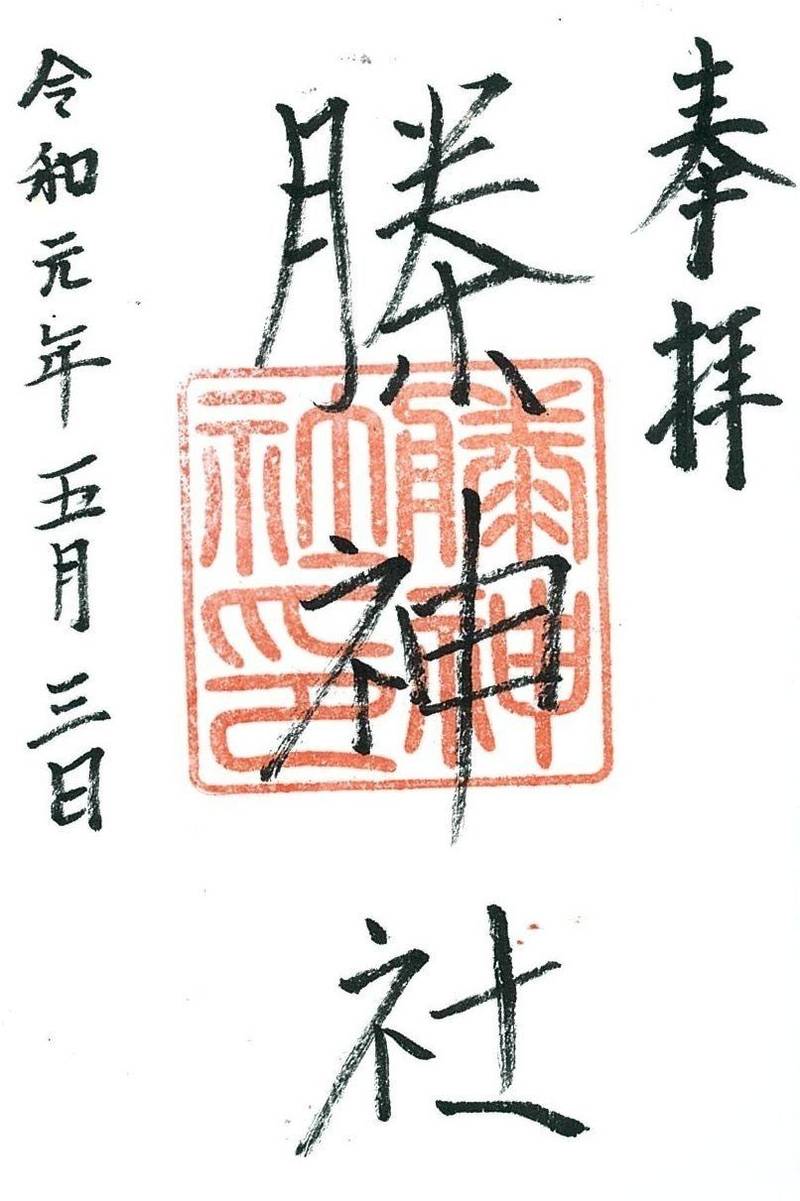 奉拝
榺神社
榺神
社印
令和元年五月三日